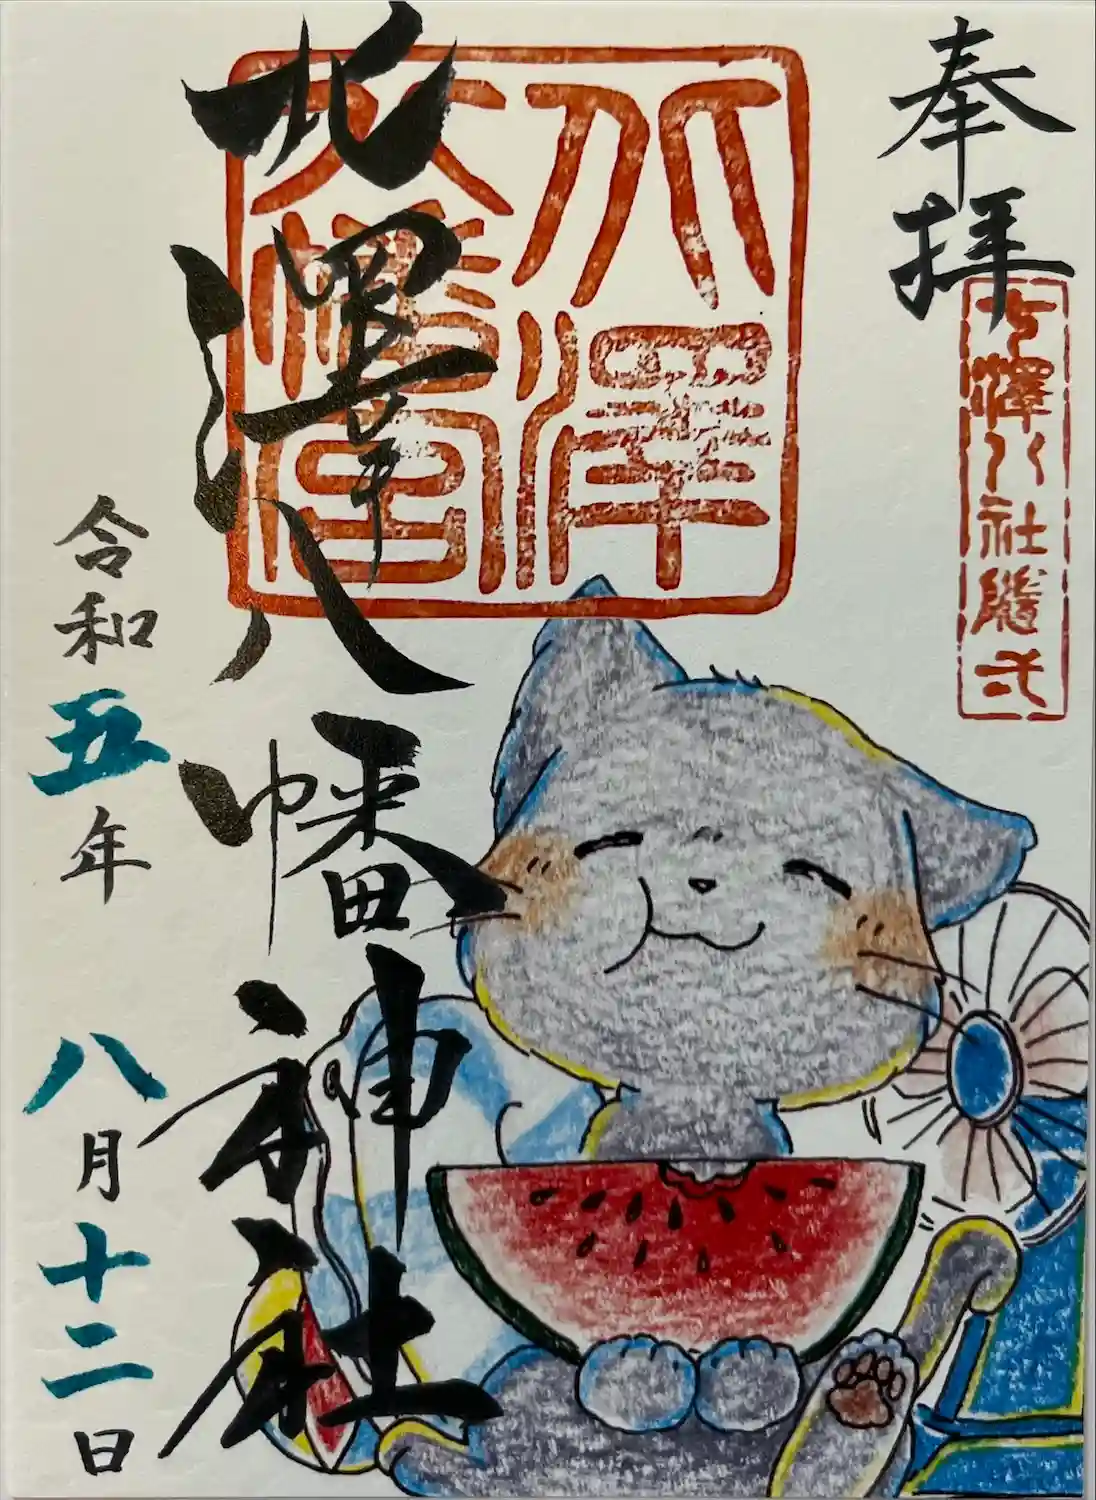 奉拝
七澤八社隨弐
北澤八幡神社
北澤八幡宮
令和五年
八月十二日